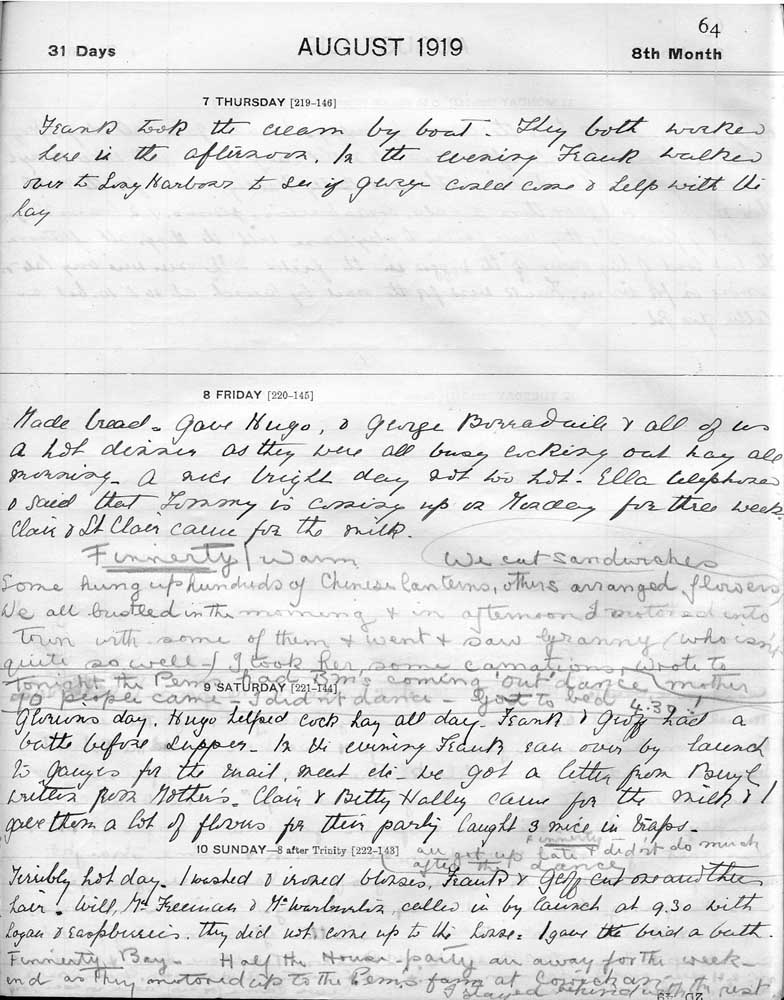 64
31 Days AUGUST 1919 8th Month
7 THURSDAY [219-146]
Frank took the cream by boat. They both worked
here in the afternoon. In the evening Frank walked
over to Long Harbour to see if George could come & help with the
hay
8 FRIDAY [220-145]
Made bread. Gave Hugo, & George Borradaile & all of us
a hot dinner as they were all busy cocking out hay all
morning. A nice bright day not too hot. Ella telephoned
& said that Tommy is coming up on Monday for three weeks
Clair & St Clair came for the milk.
Finnerty / Warm We cut sandwiches
Some hung up hundreds of Chinese lanterns, others arranged flowers
We all bustled in the morning & in afternoon I motored into
Town with some of them & went & saw Granny (who isn't
quite so well) I took her some carnations. Wrote to
Tonight the Pems had B'm's coming 'out' dance mother
people came - I didn't dance - Got to bed 4.30!
9 SATURDAY [221-144]
Glorious day. Hugo helped cock hay all day. Frank & Geoff had a
bathe before supper. In the evening Frank ran over by launch
to Ganges for the mail, meat etc. We got a letter from Beryl
written from Mother's. Clair & Betty Halley came for the milk & I
gave them a lot of flowers for their party Caught 3 mice in traps.
10 SUNDAY—8 after Trinity [222-143]
Finnerty
all got up late & didn't do much
after the dance
Terribly hot day. I washed & ironed blouses. Frank & Geoff cut one anothers
hair. Will, Mr Freeman & Mr Warburton called in by launch at 9.30 with
Logan & raspberries. They did not come up to the house. I gave the bird a bath.
Finnerty Bay. Half the House-party all away for the week-
end as they motored up to the Pem's farm at
I stayed behind with the rest